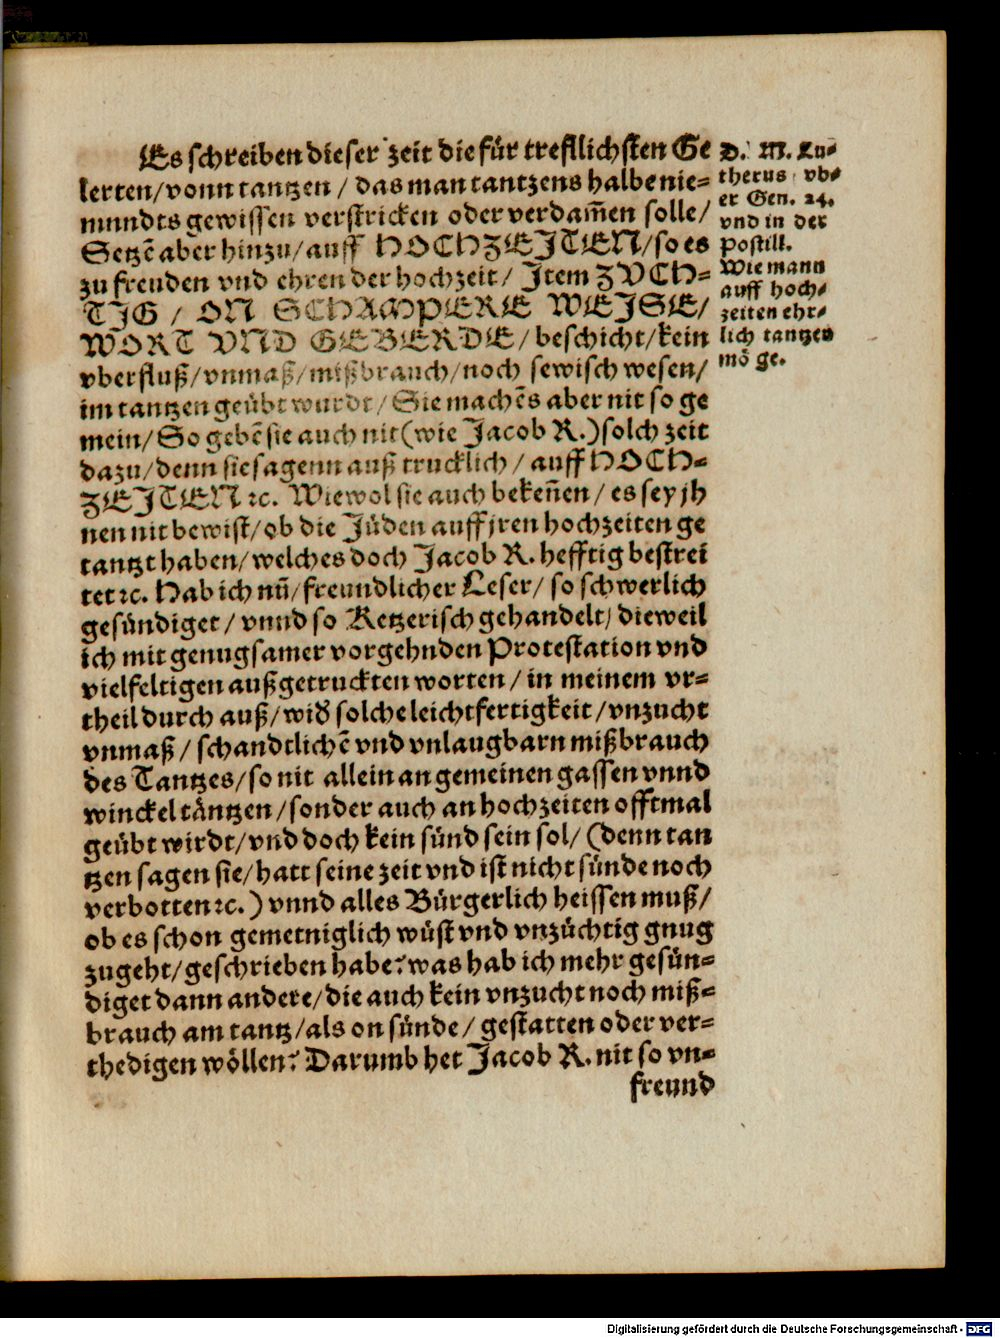 Es schreiben dieser zeit die für trefflichsten Ge
lerten/vonn tantzen / das man tantzens halbe nie=
mundts gewissen verstricken oder verdam̃en solle/
Setzẽ aber hinzu/auff HOCHZEJTEN/so es
zu freuden vnd ehren der hochzeit/ Jtem ZVCH=
TJG / ON SCHAMPERE WEJSE/
WORT VND GEBERDE/beschicht/kein
vberfluß/vnmaß/mißbrauch/noch sewisch wesen/
im tantzen geübt wurdt/Sie machẽs aber nit so ge
mein/So gebẽ sie auch nit(wie Jacob R.)solch zeit
dazu/denn sie sagenn auß trucklich/auff HOCH=
ZEJTEN ꝛc. Wiewol sie auch bekeñen/es sey jh
nen nit bewist/ob die Jüden auff jren hochzeiten ge
tantzt haben/welches doch Jacob R. hefftig bestrei
tet ꝛc. Hab ich nũ/freundlicher Leser/so schwerlich
gesündiget/vnnd so Ketzerisch gehandelt/dieweil
ich mit genugsamer vorgehnden Protestation vnd
vielfeltigen außgetruckten worten/in meinem vr=
theil durch auß/wid̕ solche leichtfertigkeit/vnzucht
vnmaß/schandtlichẽ vnd vnlaugbarn mißbrauch
des Tantzes/so nit allein an gemeinen gassen vnnd
winckel täntzen/sonder auch an hochzeiten offtmal
geübt wirdt/vnd doch kein sünd sein sol/(denn tan
tzen sagen sie/hatt seine zeit vnd ist nicht sünde noch
verbotten ꝛc.) vnnd alles Bürgerlich heissen muß/
ob es schon gemetniglich wüst vnd vnzüchtig gnug
zugeht/geschrieben habe? was hab ich mehr gesün=
diget dann andere/die auch kein vnzucht noch miß=
brauch am tantz/als on sünde/gestatten oder ver=
thedigen wöllen? Darumb het Jacob R. nit so vn=
freund
D. M. Lu=
therus vb=
er Gen. 24.
vnd in der
Postill.
Wie mann
auff hoch=
zeiten ehr=
lich tantzen
mö ge.
Digitalisierung gefördert durch die Deutsche Forschungsgemeinschaft - DFG